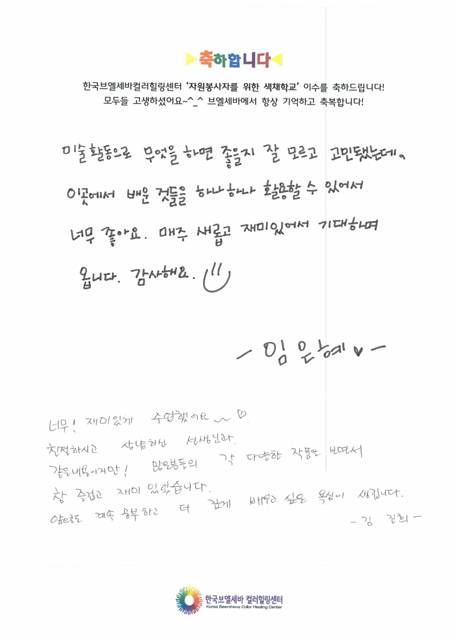 축하합니다
한국브엘세바컬러힐링센터 '자원봉사자를 위한 색채학교' 이수를 축하드립니다!
모두들 고생하셨어요~^_^ 브엘세바에서 항상 기억하고 축복합니다!
미술활동으로 무엇을 하면 좋을지 잘 모르고 고민됐는데,
이곳에서 배운 것들을 하나하나 활용할 수 있어서
너무 좋아요. 매주 새롭고 재미있어서 기대하며
옵니다. 감사해요.
- 임은혜 ♥ -
너무! 재미있게 수업했어요~ ♡
친절하시고 상냥하신 선생님과.
같은내용이지만! 많은분들의 각 다양한 작품만 보면서
참 즐겁고 재미있었습니다.
앞으로도 계속 공부하고 더 깊게 배우고 싶은 욕심이 생깁니다.
- 김 -
한국브엘세바 컬러힐링센터
Korea Beersheva Color Healing Center